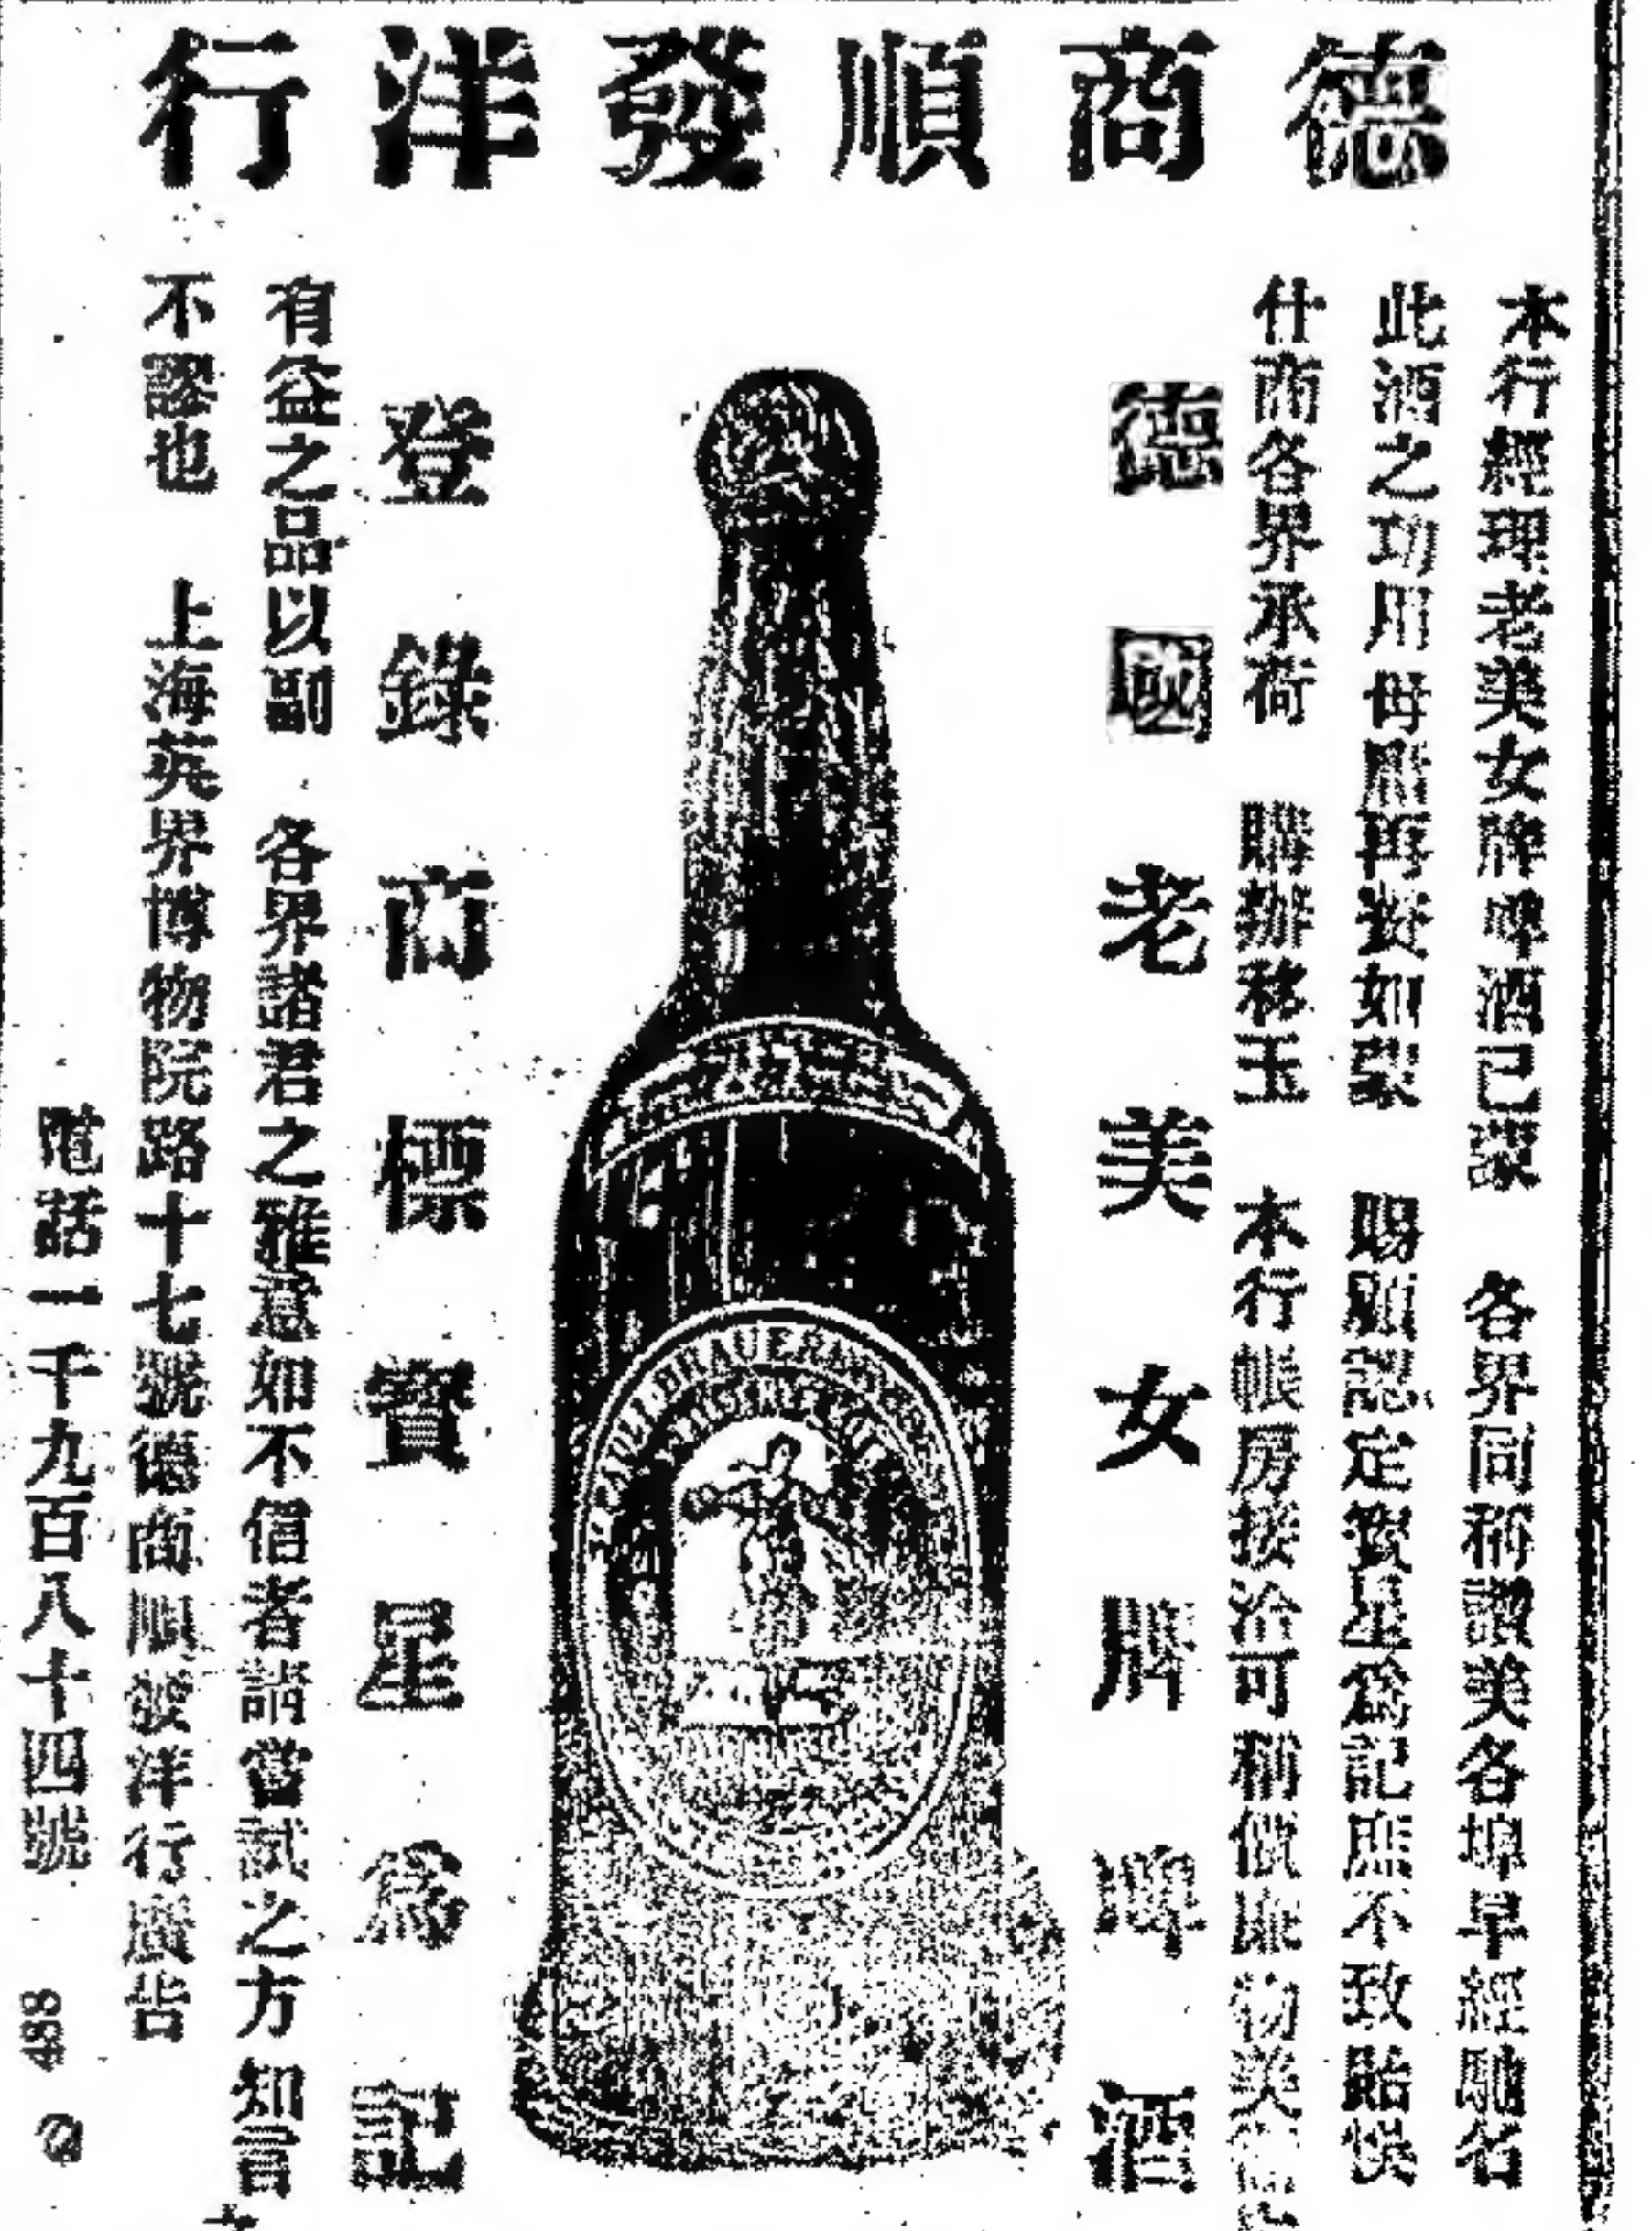 德商順發洋行
本行經理老美女牌啤酒己蒙 各界同稱讚美各埠早經馳名
此酒之功用毋庸再贅如蒙 賜顧認定寶星為記庶不致貽悞
仕商各界承荷 購辦移玉 本行帳房接洽可稱價廉物美
德國老美女牌啤酒
登錄商標寶星為記
有益之品以副 各界諸君之雅意如不信者請嘗試之方知言
不謬也 上海英界博物院路十七號德商順發洋行廣告
電話一千九百八十四號 488